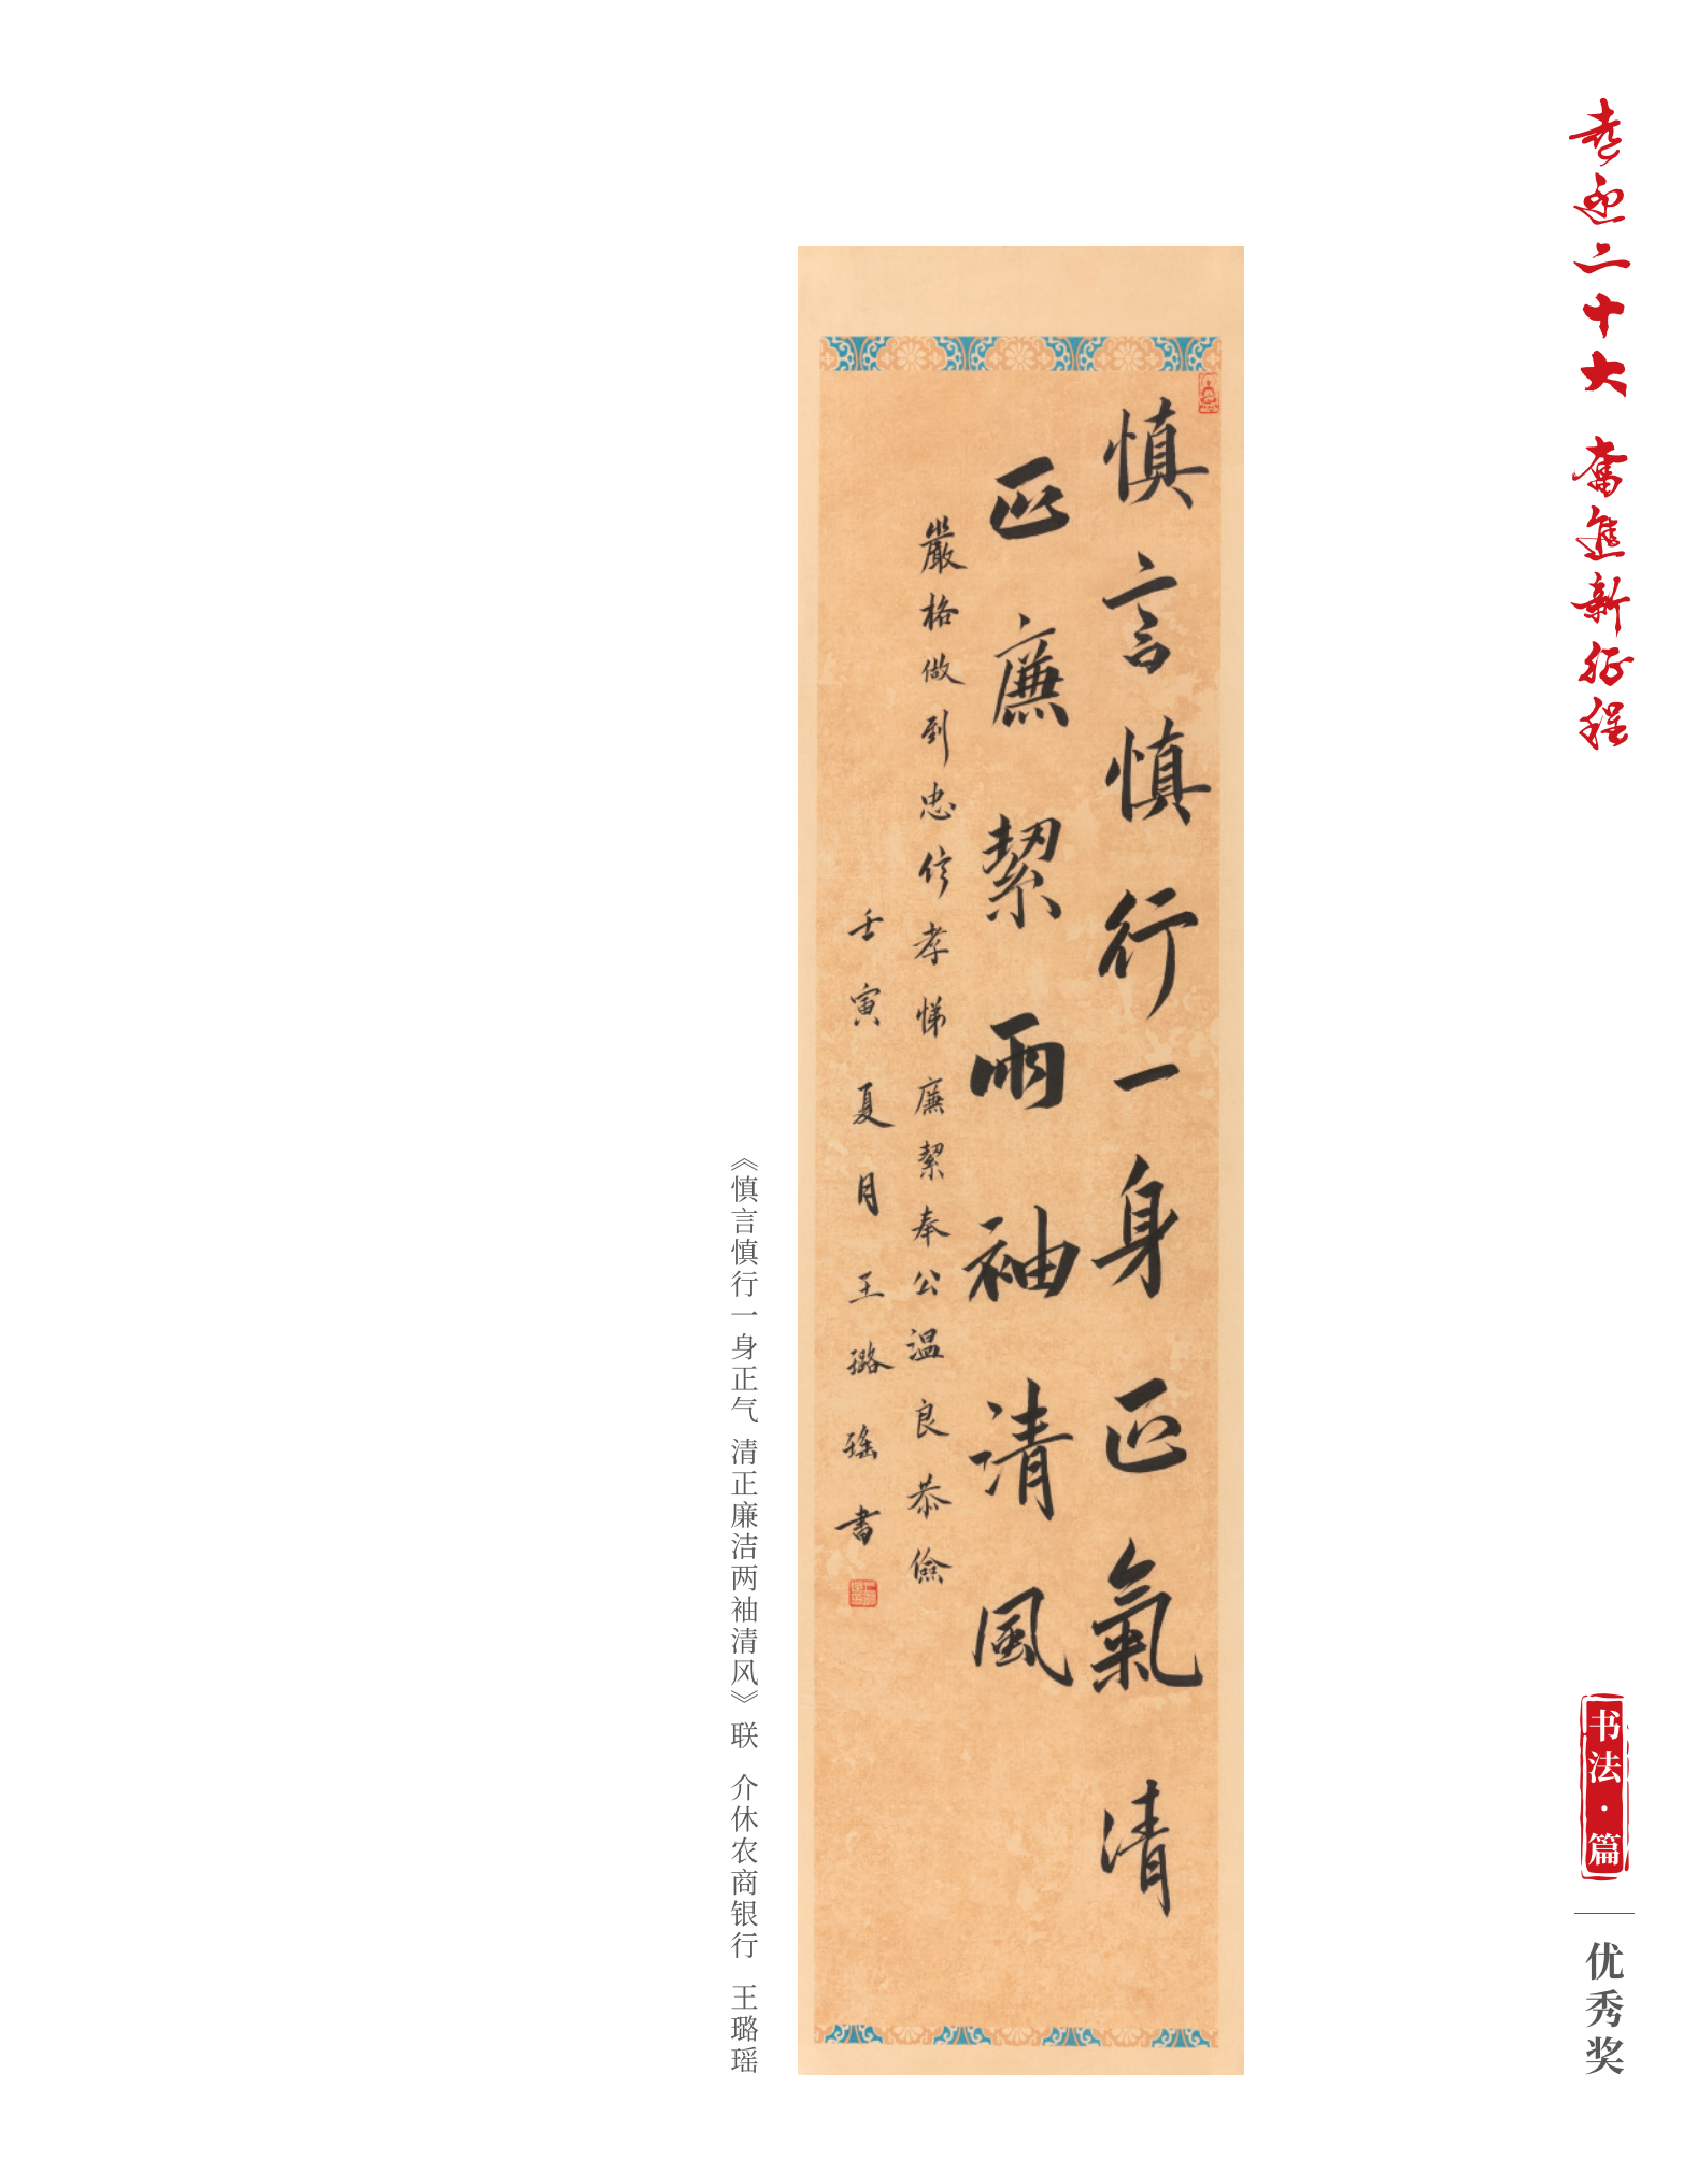 喜迎二十大 奋进新征程
书法·篇
优秀奖
慎言慎行一身正氣清
正廉絜兩袖清風
嚴格做到忠信孝悌廉絜奉公温良恭儉
壬寅夏月王璐瑶书
《慎言慎行一身正气 清正廉洁两袖清风》联 介休农商银行 王璐瑶